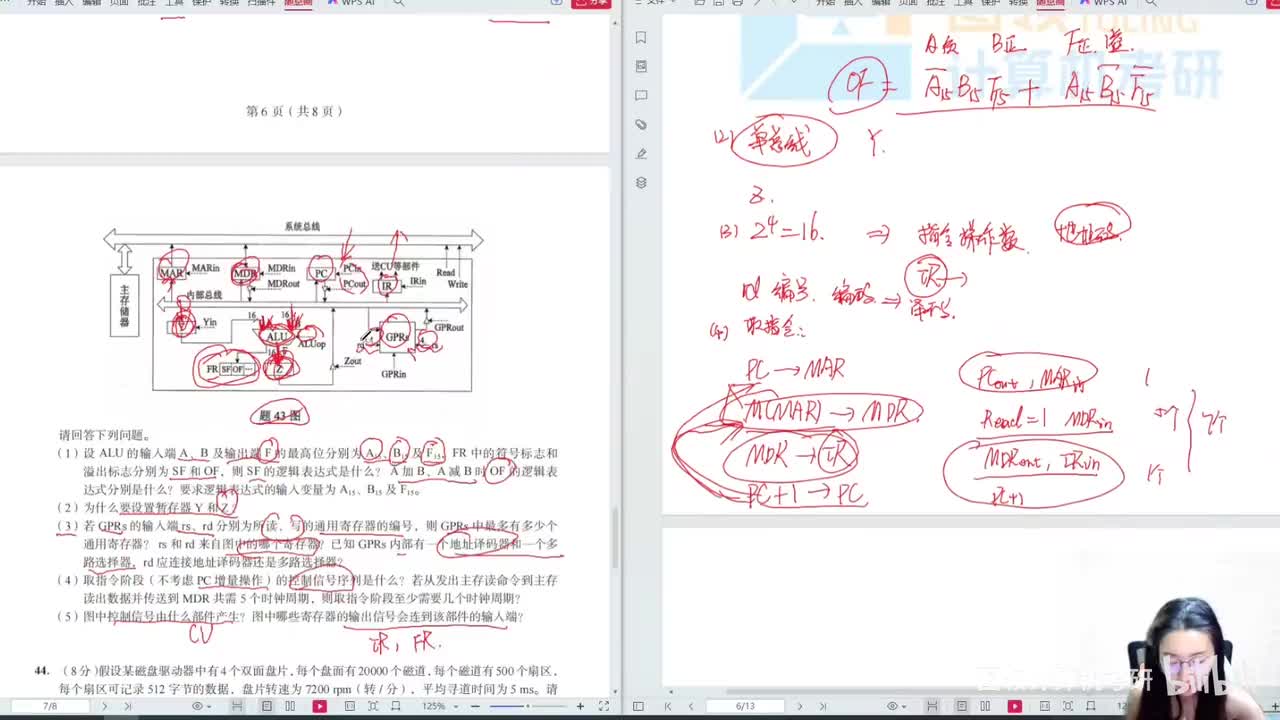 开始 插入 编辑 页面 批注 工具 保护 转换 扫描件 随意画 WPS AI
分享
第 6 页 ( 共 8 页 )
系统总线
主存储器
MAR MARin MDR MDRin MDRout PC PCin PCout 送CU等部件 IR IRin Read Write
内部总线
Y Yin 16 16 ALU ALUop GPRs GPRout
FR SF OF … 16 Z Zout GPRin
题 43 图
请回答下列问题。
(1) 设 ALU 的输入端 A、B 及输出端 F 的最高位分别为 A15、B15 及 F15, FR 中的符号标志和
溢出标志分别为 SF 和 OF, 则 SF 的逻辑表达式是什么? A 加 B、A 减 B 时 OF 的逻辑表
达式分别是什么? 要求逻辑表达式的输入变量为 A15、B15 及 F15。
(2) 为什么要设置暂存器 Y 和 Z?
(3) 若 GPRs 的输入端 rs、rd 分别为所读、写的通用寄存器的编号, 则 GPRs 中最多有多少个
通用寄存器? rs 和 rd 来自图中的哪个寄存器? 已知 GPRs 内部有一个地址译码器和一个多
路选择器, rd 应连接地址译码器还是多路选择器?
(4) 取指令阶段 (不考虑 PC 增量操作) 的控制信号序列是什么? 若从发出主存读命令到主存
读出数据并传送到 MDR 共需 5 个时钟周期, 则取指令阶段至少需要几个时钟周期?
(5) 图中控制信号由什么部件产生? 图中哪些寄存器的输出信号会连到该部件的输入端?
CU IR, FR.
44. (8 分) 假设某磁盘驱动器中有 4 个双面盘片, 每个盘面有 20000 个磁道, 每个磁道有 500 个扇区,
每个扇区可记录 512 字节的数据, 盘片转速为 7200 rpm (转 / 分), 平均寻道时间为 5 ms。请
7/8 125%
文件 开始 插入 编辑 页面 批注 工具 保护 转换 随意画 WPS AI
TULING
计算机考研
A负 B正 F正. 溢.
OF = A̅15 B15 F15 + A15 B̅15 F̅15
(2) 单总线 Y.
Z.
(3) 2⁴=16. ⇒ 指令操作数 地址码.
rd 编号. 编码 ⇒ 译码. IR →
(4) 取指令:
PC → MAR PCout, MARin 1
M(MAR) → MDR Read=1 MDRin 5个 7个
MDR → IR MDRout, IRin 1个
PC+1 → PC PC+1
6/13
计算机考研 bilibili